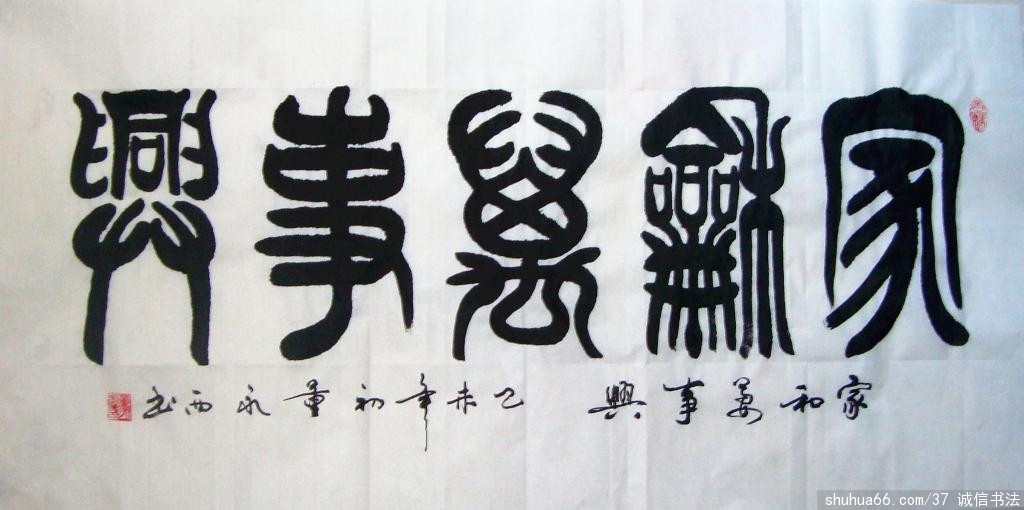 家龢萬事興
家和萬事興 乙未年初董永西书
shuhua66.com/37 诚信书法